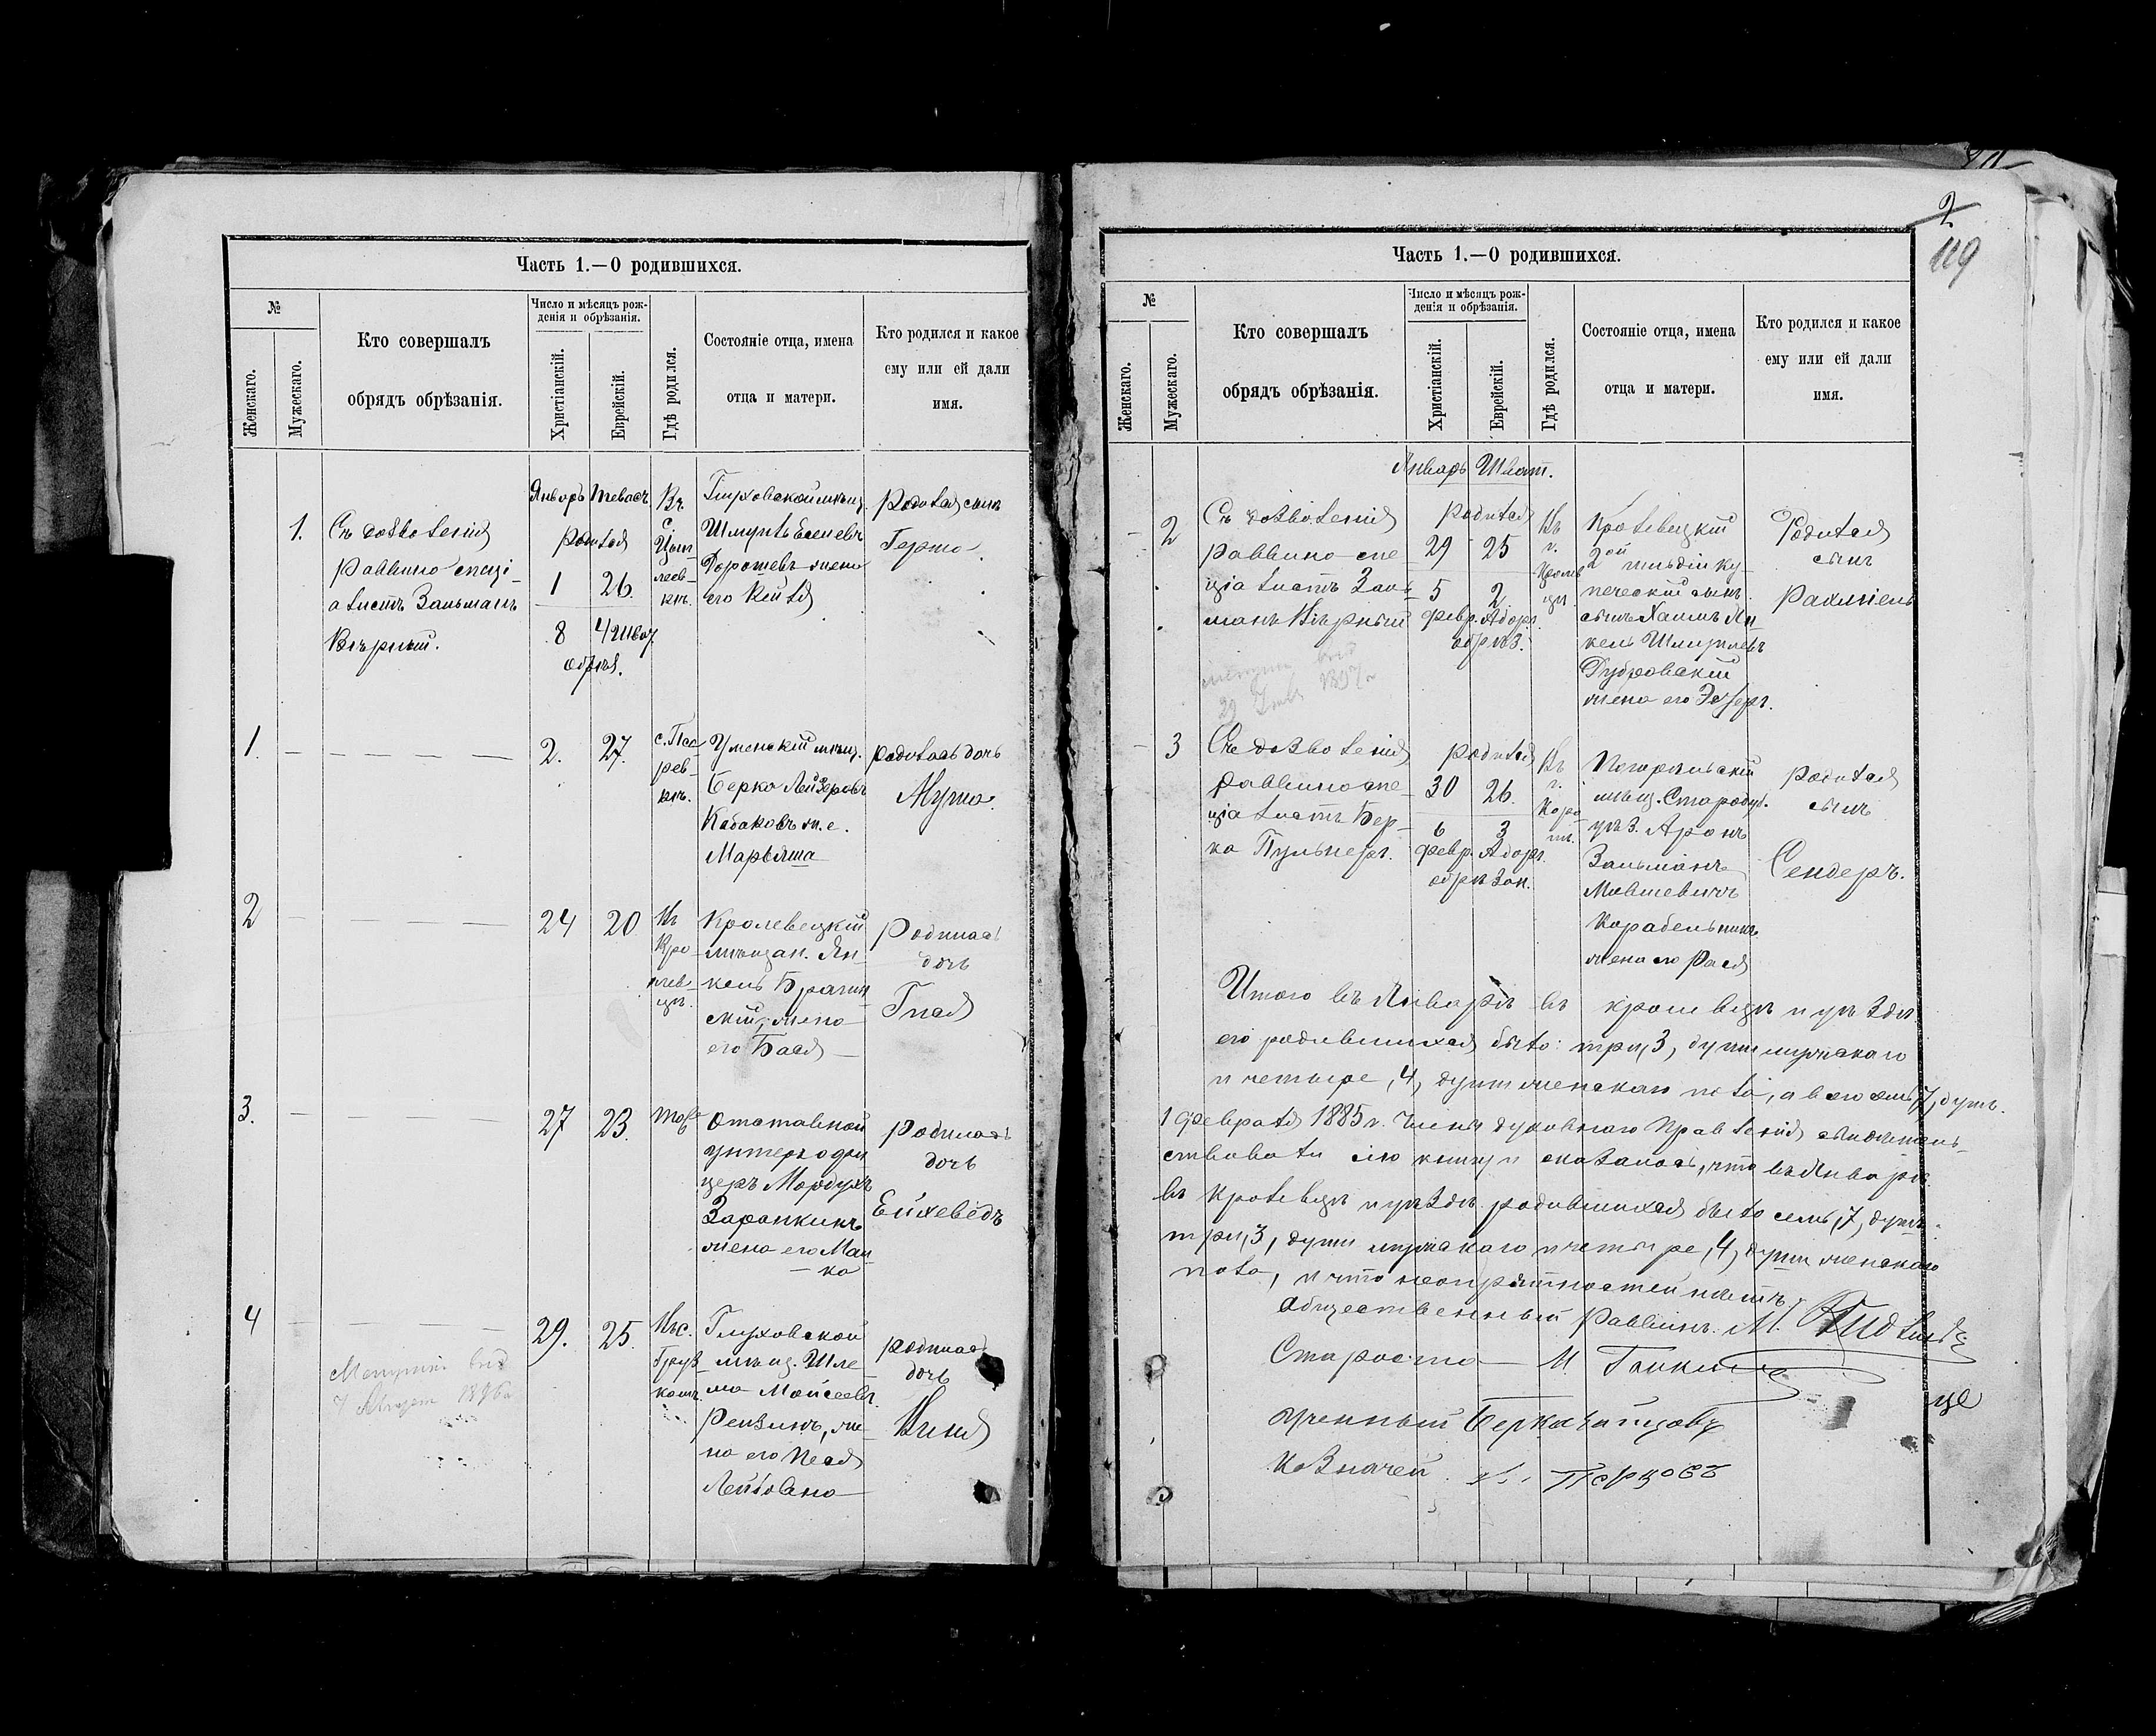 Часть 1.—О родившихся.
№
Женскаго.
Мужескаго.
Кто совершалъ
обрядъ обрѣзанія.
Число и мѣсяцъ рож-
денія и обрѣзанія.
Христіанскій.
Еврейскій.
Гдѣ родился.
Состояніе отца, имена
отца и матери.
Кто родился и какое
ему или ей дали
имя.
1.
Съ дозволенія
раввина спеці-
алистъ Зальманъ
Вѣрный.
Январь Теваса
родился
1 26.
8 4 Шват
обрѣз.
Въ
с.
Глуховской мѣщ.
Шмуиль
Дорошевъ жена
его Кейля
Родился сынъ
1.
2. 27.
рев-
кѣ.
Уменскій мѣщ.
Берко Лейзеровъ
Кабаковъ ж. е.
Марьяша
родилась дочь
Мусна.
2
24 20
Въ
Кро-
лев-
цѣ.
Кролевецкій
мѣщан. Ян-
кель Брагин-
скій, жена
его Бася
Родилась
дочь
Гнася
3.
27 23.
тоже
Отставной
унтеръ офи
церъ Мордухъ
Заропкинъ
жена его Ман
ка
Родилась
дочь
Ейхеведъ
4
29. 25.
Въ с.
Груз
Глуховской
мѣщ. Шле
ма Мойсеевъ
Рензинъ, же-
на его Песя
Лейбовна
родилась
дочь
2
119
Часть 1.—О родившихся.
№
Женскаго.
Мужескаго.
Кто совершалъ
обрядъ обрѣзанія.
Число и мѣсяцъ рож-
денія и обрѣзанія.
Христіанскій.
Еврейскій.
Гдѣ родился.
Состояніе отца, имена
отца и матери.
Кто родился и какое
ему или ей дали
имя.
Январь Шват.
2
Съ дозволенія
раввина спе
ціалистъ Заль-
манъ Вѣрный
родился
29 25
5 2
февр. Адоръ
обрѣз.
Въ
г.
Кролев
цѣ.
Кролевецкій
2ой гильдіи ку-
печескій сынъ
Хаимъ Ян-
кель Шмуилевъ
Дубровскій
жена его Эсѳерь.
Родился
сынъ
Рахміель
3
Съ дозволенія
раввина спе
ціалистъ Бер-
ка Пульнеръ.
родился
30 26.
6 3
февр. Адоръ.
обрѣзан.
Въ
г.
Коро
пѣ.
Погорѣльскій
мѣщ. Стародуб.
уѣз. Аронъ
Зальманъ
Мовшевичъ
Корабельникъ
жена его Рася
родился
сынъ
Сендеръ.
Итого въ Январѣ въ Кролевцѣ и уѣздѣ
его родившихся было: три, 3, души мужскаго
и четыре, 4, души женскаго пола, а всего семь, 7, душъ.
1 Февраля 1885 г. Члены духовнаго Правленія свидѣтель-
ствовали сію книгу и оказалось, что въ Январѣ
въ Кролевцѣ и уѣздѣ родившихся было семь, 7, душъ:
три, 3, души мужскаго и четыре, 4, души женскаго
пола, и что неопрятностей нѣтъ.
Общественный Раввинъ М.
Староста М.
Ученный Берка
Казначей Перцовъ